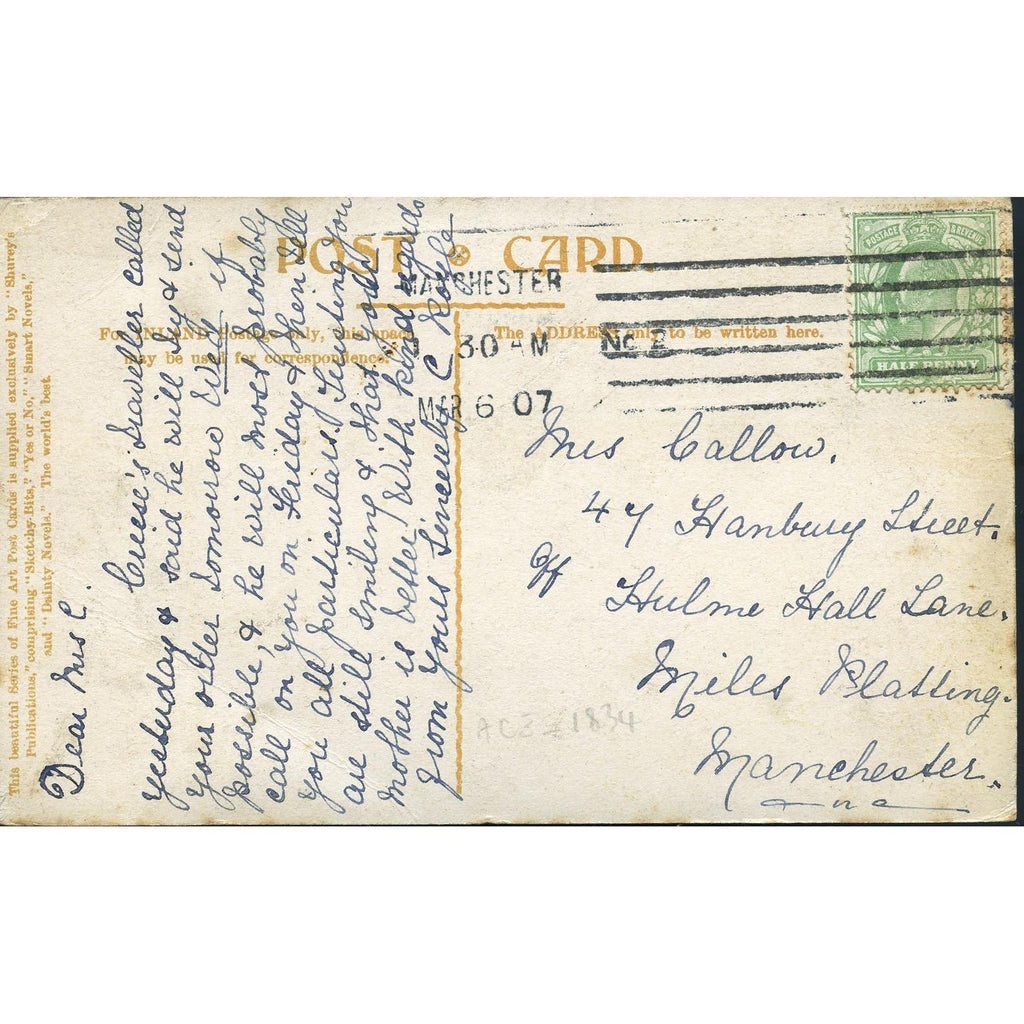 This beautiful Series of Fine Art Post Cards is supplied exclusively by "Shurey's
Publications," comprising "Sketchy-Bits," "Yes or No," "Smart Novels,"
and "Dainty Novels." The world's best.
POST CARD.
For INLAND Postage only, this space
may be used for correspondence.
The ADDRESS only to be written here.
MANCHESTER
30 AM No 2
MAR 6 07
POSTAGE & REVENUE
HALFPENNY
Dear Mrs C.
traveller called
yesterday & said he will try & send
your order tomorrow Wed. if
possible, & he will most probably
call on you on Friday & then tell
you all particulars. Trusting you
are still smiling & that
mother is better, With kind regards
from yours sincerely C
Mrs Callow.
47 Hanbury Street.
off Hulme Hall Lane.
Miles Platting.
Manchester.
1834